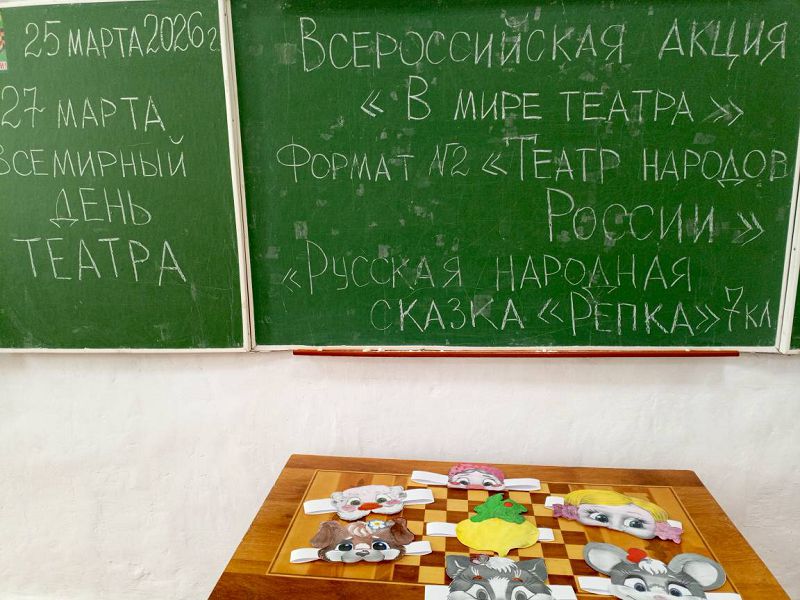 25 МАРТА 2026 г
27 МАРТА
ВСЕМИРНЫЙ
ДЕНЬ
ТЕАТРА
ВСЕРОССИЙСКАЯ АКЦИЯ
« В МИРЕ ТЕАТРА »
ФОРМАТ №2 « ТЕАТР НАРОДОВ
РОССИИ »
«РУССКАЯ НАРОДНАЯ
СКАЗКА «РЕПКА» 7 КЛ